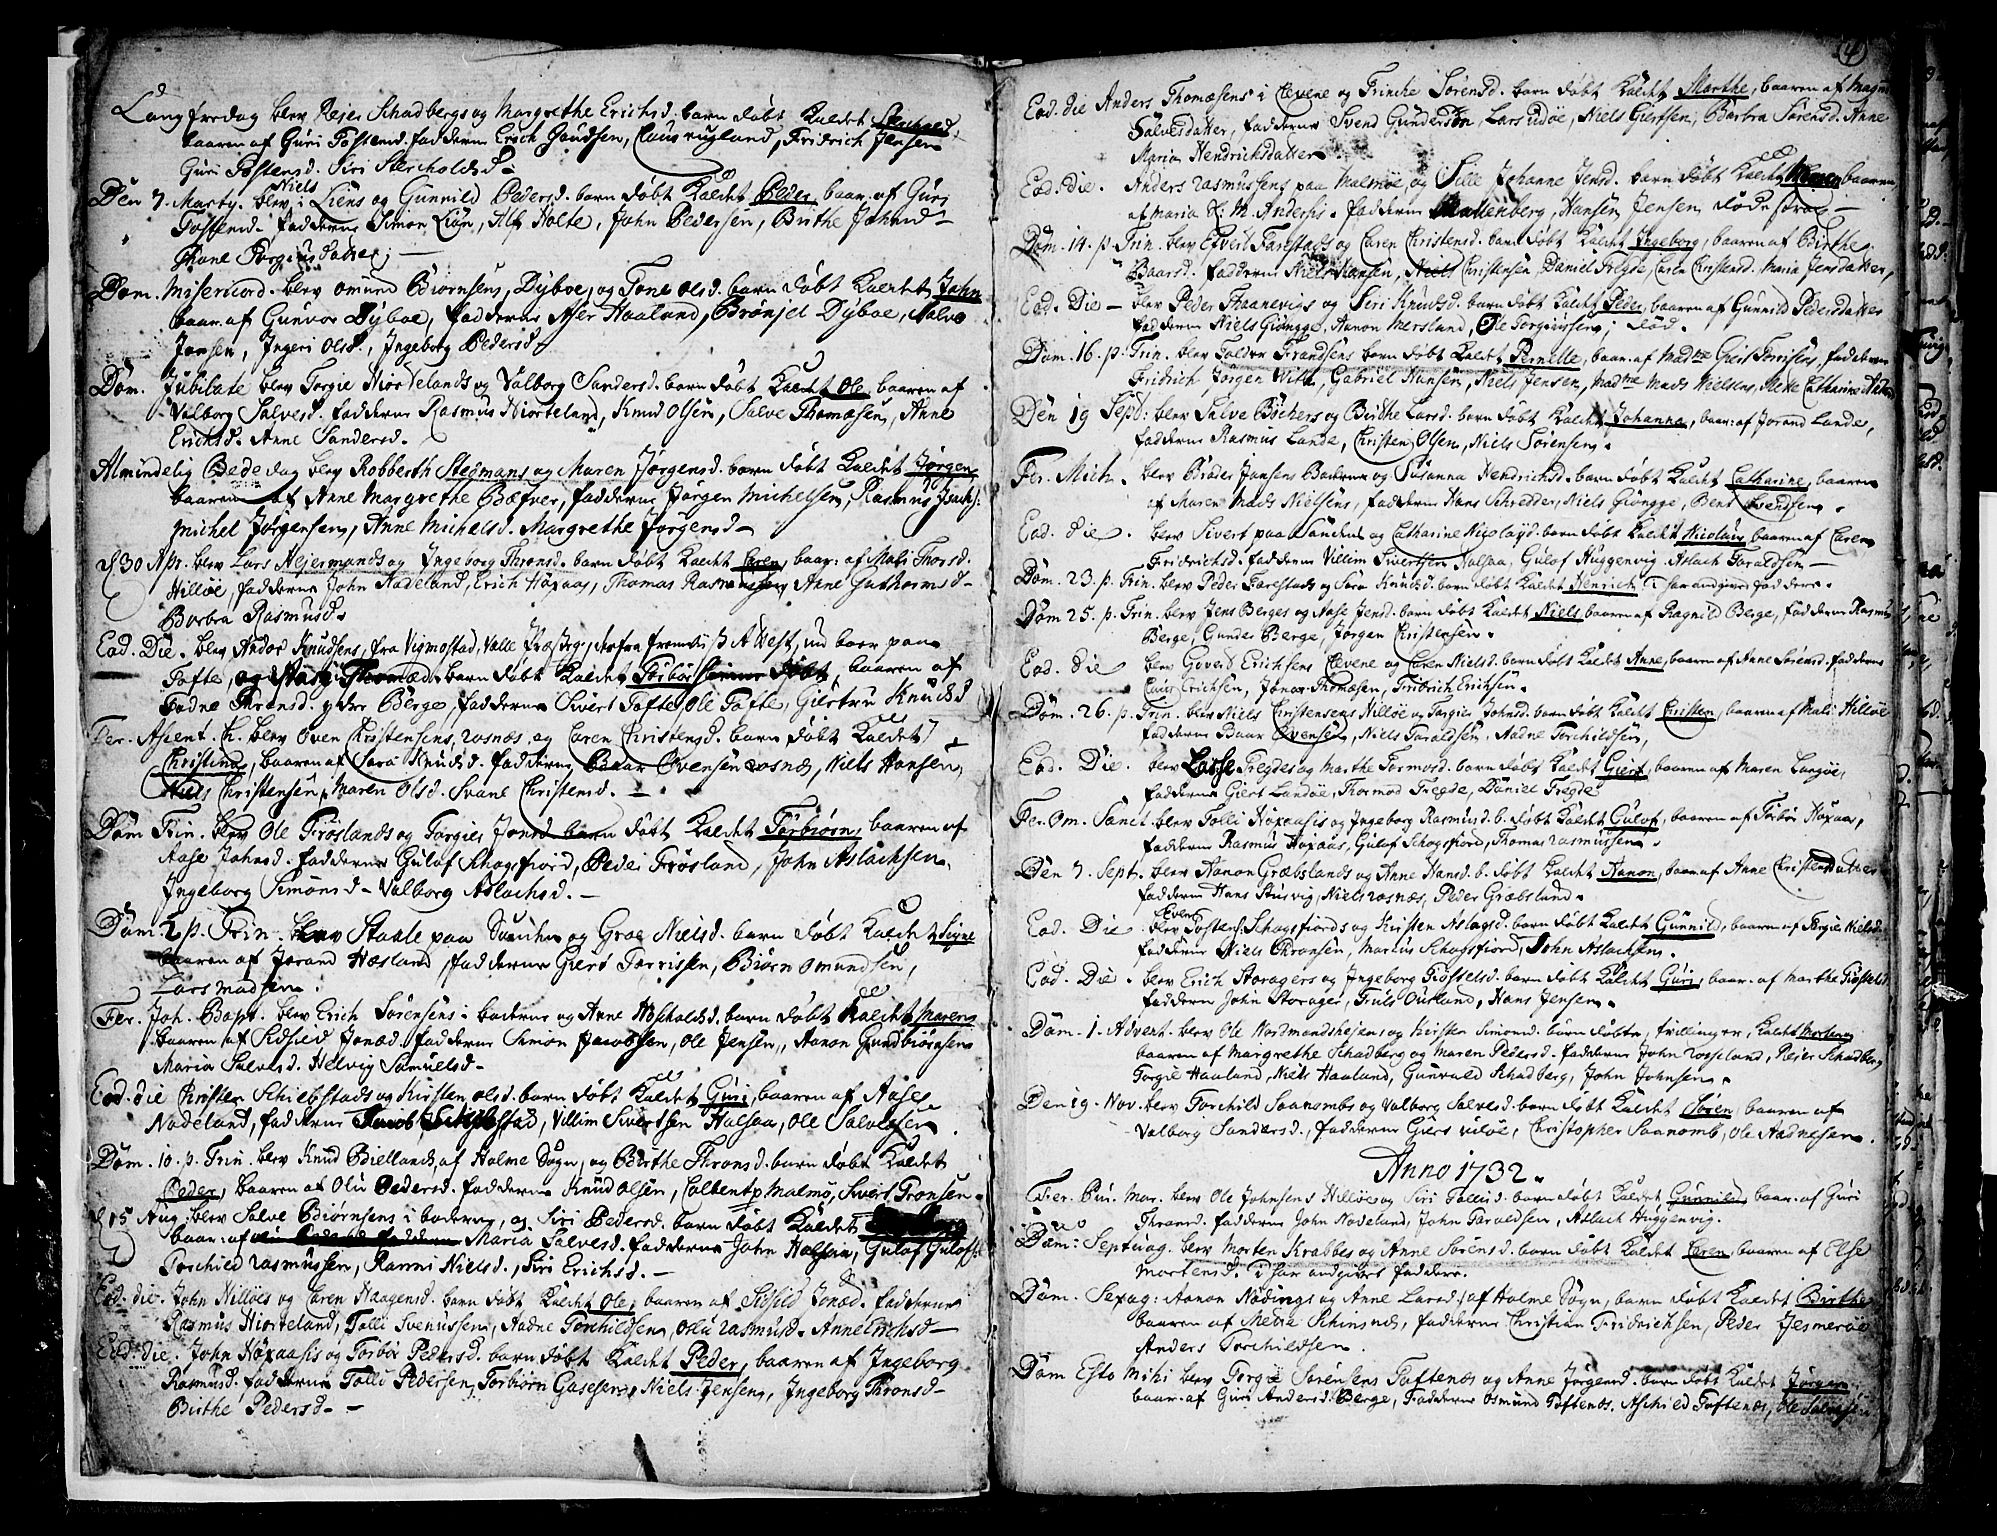 Langfredag blev Reier Schadbergs og Margrethe Erichsd. barn døbt kaldet
baaren af Guri Tostensd. fadderne Erich Knudsen, Claus rugland, Fridrich Jensen
Guri Tostensd. Siri Stercholsd.
Den 7. Marty. blev Niels Liens og Gunnild Pedersd. barn døbt kaldet Peder, baar. af Guri
Tostensd. fadderne Simon Lien, Alf Holte, John Pedersen, Birthe Johnsd.
Thone Torgiusdatter;
Dom. Misericord. blev Omund Biørnsens, Dyboe, og Tone Olsd. barn døbt kaldet John
baar. af Gunvor Dyboe, fadderne Aser Haaland, Brønjel Dyboe, Salve
Jansen, Ingeri Olsd., Ingeborg Pedersd.
Dom. Jubilate blev Torgie Hiortelands og Valborg Sandersd. barn døbt kaldet Ole, baaren af
Valborg Salvesd. fadderne Rasmus Hiorteland, Knud Olsen, Salve Thomæsen, Anne
Erichsd. Anne Sandersd.
Almindelig Bededag blev Robberth Stegmans og Maren Jørgensd. barn døbt kaldet Jørgen,
baaren af Anne Margrethe Bæfver, fadderne Jørgen Michelsen, Rasmus Isachs:
Michel Jørgensen, Anne Michelsd. Margrethe Jørgensd.
d. 30 Apr. blev Lars Asjermands og Ingeborg Thronsd. barn døbt kaldet Caren, baar: af Mali Thorsd.
Hilløe, fadderne John Nadeland, Erich Høxaas, Thomas Rasmussen, Anne Guthormsd.
Barbra Rasmusd.
Eod. Die. blev Andor Knudsens, fra Vigmostad, Valle
Tofte, og barn døbt kaldet Torbør baaren af
Aadne Thronsd. Berge, fadderne Sivert Tofte, Ole Tofte, Giertru Knudsd.
Fer. Ascent. C. blev Oven Christensens, rosnæs, og Caren Christensd. barn døbt kaldet
Christina, baaren af Sara Knudsd. fadderne Baar Ovensen rosnæs, Niels Hansen,
Niels Christensen, Maren Olsd. Svane Christensd.
Dom. Trin. blev Ole Frøslands og Torgier Jonsd. barn døbt kaldet Torbiørn, baaren af
Aase Johnsd. fadderne Gulof Schogsfiord, Peder Frøsland, John Aslachsen,
Ingeborg Simonsd. Valborg Aslachsd.
Dom. 2 p. Trin. blev Staale paa Sanden og Groe Nielsd. barn døbt kaldet Signe
baaren af Jorand Hæsland, fadderne Gierø Torrissen, Biørn Omundsen,
Lars Madsen.
Fer. Joh. Bapt. blev Erich Sørensens i boderne og Anne Asholdsd. barn døbt kaldet Maren
baaren af Sidsild Jonæd. fadderne Simon Jacobsen, Ole Jensen, Aanon Gundbiørnsen
Maria Salvesd. Helvig Samuelsd.
Eod. die Christen Schiebstads og Kirsten Olsd. barn døbt kaldet Guri, baaren af Aase
Nadeland, fadderne Jacob Schibstad, Villim Sivertsen Halsaa, Ole Salvesen.
Dom. 10. p. Trin. blev Knud Biellands, af Holme Sogn, og Birthe Thronsd. barn døbt kaldet
Peder, baaren af Olu Pedersd. fadderne Knud Olsen, Colbent p Malmø, Sivert Tronsen
d. 15 Aug. blev Salve Biørnsens i boderne, og Siri Pedersd. barn døbt kaldet
baar: af Maria Salvesd. fadderne John Halsaa, Gulof Gulofs:
Torchild rasmussen, Ranni Nielsd., Siri Erichsd.
Eod. die. John Hilløes og Caren Haagensd. barn døbt kaldet Ole, baaren af Sidsild Jonæd. fadderne
Rasmus Hiorteland, Tolli Svenussen, Aadne Torchildsen, Olu rasmusd. Anne Erichsd.
Eod. die. John Høxaasis og Torbør Pedersd. barn døbt kaldet Peder, baaren af Ingeborg
Rasmusd. fadderne Tolli Pedersen, Torbiørn Gasesen, Niels Jensen, Ingeborg Thronsd.
Birthe Pedersd.
4
Eod. die Anders Thomæsens i Clevene og Trinche Sørensd. barn døbt kaldet Marthe, baaren af Magn
Salvesdatter, fadderne Svend Gundersøn, Lars Udøe, Niels Giertsen, Barbra Sørensd. Anne
Maria Hendricksdatter.
Eod. die. Anders rasmussens paa Malmøe og Sille Johanne Jensd. barn døbt kaldet Maren, baaren
af Maria H: M. Andersis. fadderne Mallenberg, Hansen, Jensen,
Dom. 14. p. Trin. blev Efverd Farestads og Caren Christensd. barn døbt kaldet Ingeborg, baaren af Birthe
Baarsd. fadderne Niels Hansen, Niels Christensen, Daniel Tregde, Caren Christensd. Maria Jensdatter,
Eod. Die blev Peder Haanevigs og Siri Knudsd. barn døbt kaldet Peder, baaren af Gunnild Pedersdatter
fadderne Niels Giøngge, Aanon Mersland, Ole Torgiusen; død.
Dom. 16. p. Trin. blev Folder Frandsens barn døbt kaldet Pernille, baar. af Mad.me Giert Torrisens, fadderne
Fridrich Jørgen Witt, Gabriel Hansen, Niels Jensen, Mad.me Mads Nielsens, Mette Catharine
Den 19 Sept: blev Salve Bøchers og Birthe Larsd. barn døbt kaldet Johanne, baar: af Jorand Lande,
fadderne Rasmus Lande, Christen Olsen, Niels Sørensen.
Fer. Mich. blev Broder Jansens Boderne og Susanna Hendrichsd. barn døbt kaldet Catharine, baaren
af Maren Mads Nielsens, fadderne Hans Schredder, Niels Giøngge, Bent Svendsen.
Eod. die. blev Sivert paa Sandens og Catharine Nicolaysd. barn døbt kaldet Nicolay baaren af Caren
Fridrichsd. fadderne Villim Sivertsen Halsaa, Gulof Huggenvig, Aslach Taraldsen
Dom. 23. p. Trin. blev Peder Farestads og Sara Knudsd. barn døbt kaldet Henrich, i har angiven faddere.
Dom 25. p. Trin. blev Jens Berges og Aase Jensd. barn døbt kaldet Niels baaren af Ragnild Berge, fadderne Rasmus
Berge, Gunder Berge, Jørgen Christensen.
Eod. die blev Goverd Erichsens Clevene og Caren Nielsd. barn døbt kaldet Anne, baaren af Anne Sørensd. fadderne
Claus Erichsen, Jonas Thomæsen, Fridrich Erichsen.
Dom. 26. p. Trin. blev Niels Christensens Hilløe og Torgier Johnsd. barn døbt kaldet Christen, baaren af Mali Hilløe
fadderne Baar Evensen, Niels Taraldsen, Aadne Torchildsen,
Eod. Die. blev Lasse Tregdes og Marthe Tormosd. barn døbt kaldet Giert, baaren af Maren Langøe,
fadderne Giert Landøe, Thormod Tregde, Daniel Tregde
Fer. Om. Sanct. blev Tolli Høxaasis og Ingeborg Rasmusd. b. døbt kaldet Gulof, baaren af Torbør Høxaas,
fadderne Rasmus Høxaas, Gulof Schogsfiord, Thomas rasmussen.
Den 7. Sept. blev Aanon Græbslands og Anne Hansd. b. døbt kaldet Aanon, baaren af Anne Christensdatter
fadderne Hans Stusvig, Niels rosnæs, Peder Græbsland.
Eod. Die blev Even Tostens: Schogsfiords og Kirsten Aslagsd. barn døbt kaldet Gunnild, baaren af Torgier Nielsd.
fadderne Niels Thronsen, Marcus Schogsfiord, John Aslachsen.
Eod. Die. blev Erich Storagers og Ingeborg Giøssilsd. barn døbt kaldet Guri, baar. af Marthe Giøsselsd
fadderne John Storager, Truls Outland, Hans Jensen.
Dom. 1. Advent. blev Ole Nordmandshejens og Kirsten Simonsd. barn døbte, trillinger, kaldet Morten
baaren af Margrethe Schadberg og Maren Pedersd. fadderne John rosseland, Reier Schadberg
Torgie Haaland, Niels Haaland, Gunvald Schadberg, John Johnsen.
Den 19. Nov. blev Torchild Saanombs og Valborg Salvesd. barn døbt kaldet Søren, baaren af
Valborg Sandersd., fadderne Giert Uiløe, Christopher Saanomb, Ole Aadnesen.
Anno 1732.
Fer. Pur. Mar. blev Ole Johnsens Hilløe og Siri Tollisd. barn døbt kaldet Gunnild, baar. af Guri
Thronsd. fadderne John Nodeland, John Taraldsen, Aslach Huggenvig.
Dom: Septuag. blev Morten Krabbes og Anne Sørensd. barn døbt kaldet Caren baaren af Else
Mortensd. i har angivet faddere.
Dom. Sexag: Aanon Nødings og Anne Larsd. af Holme Sogn, barn døbt kaldet Birthe
baaren af Metta Schinsnæs, fadderne Christian Fridrichsen, Peder Jesmerøe
Anders Torchildsen.
Dom Esto Mihi blev Torgie Sørensens Toftenæs og Anne Jørgensd. barn døbt kaldet Jørgen
baar. af Guri Andersd. Berge, fadderne Osmund Toftenæs, Aschild Toftenæs, Ole Salvesen